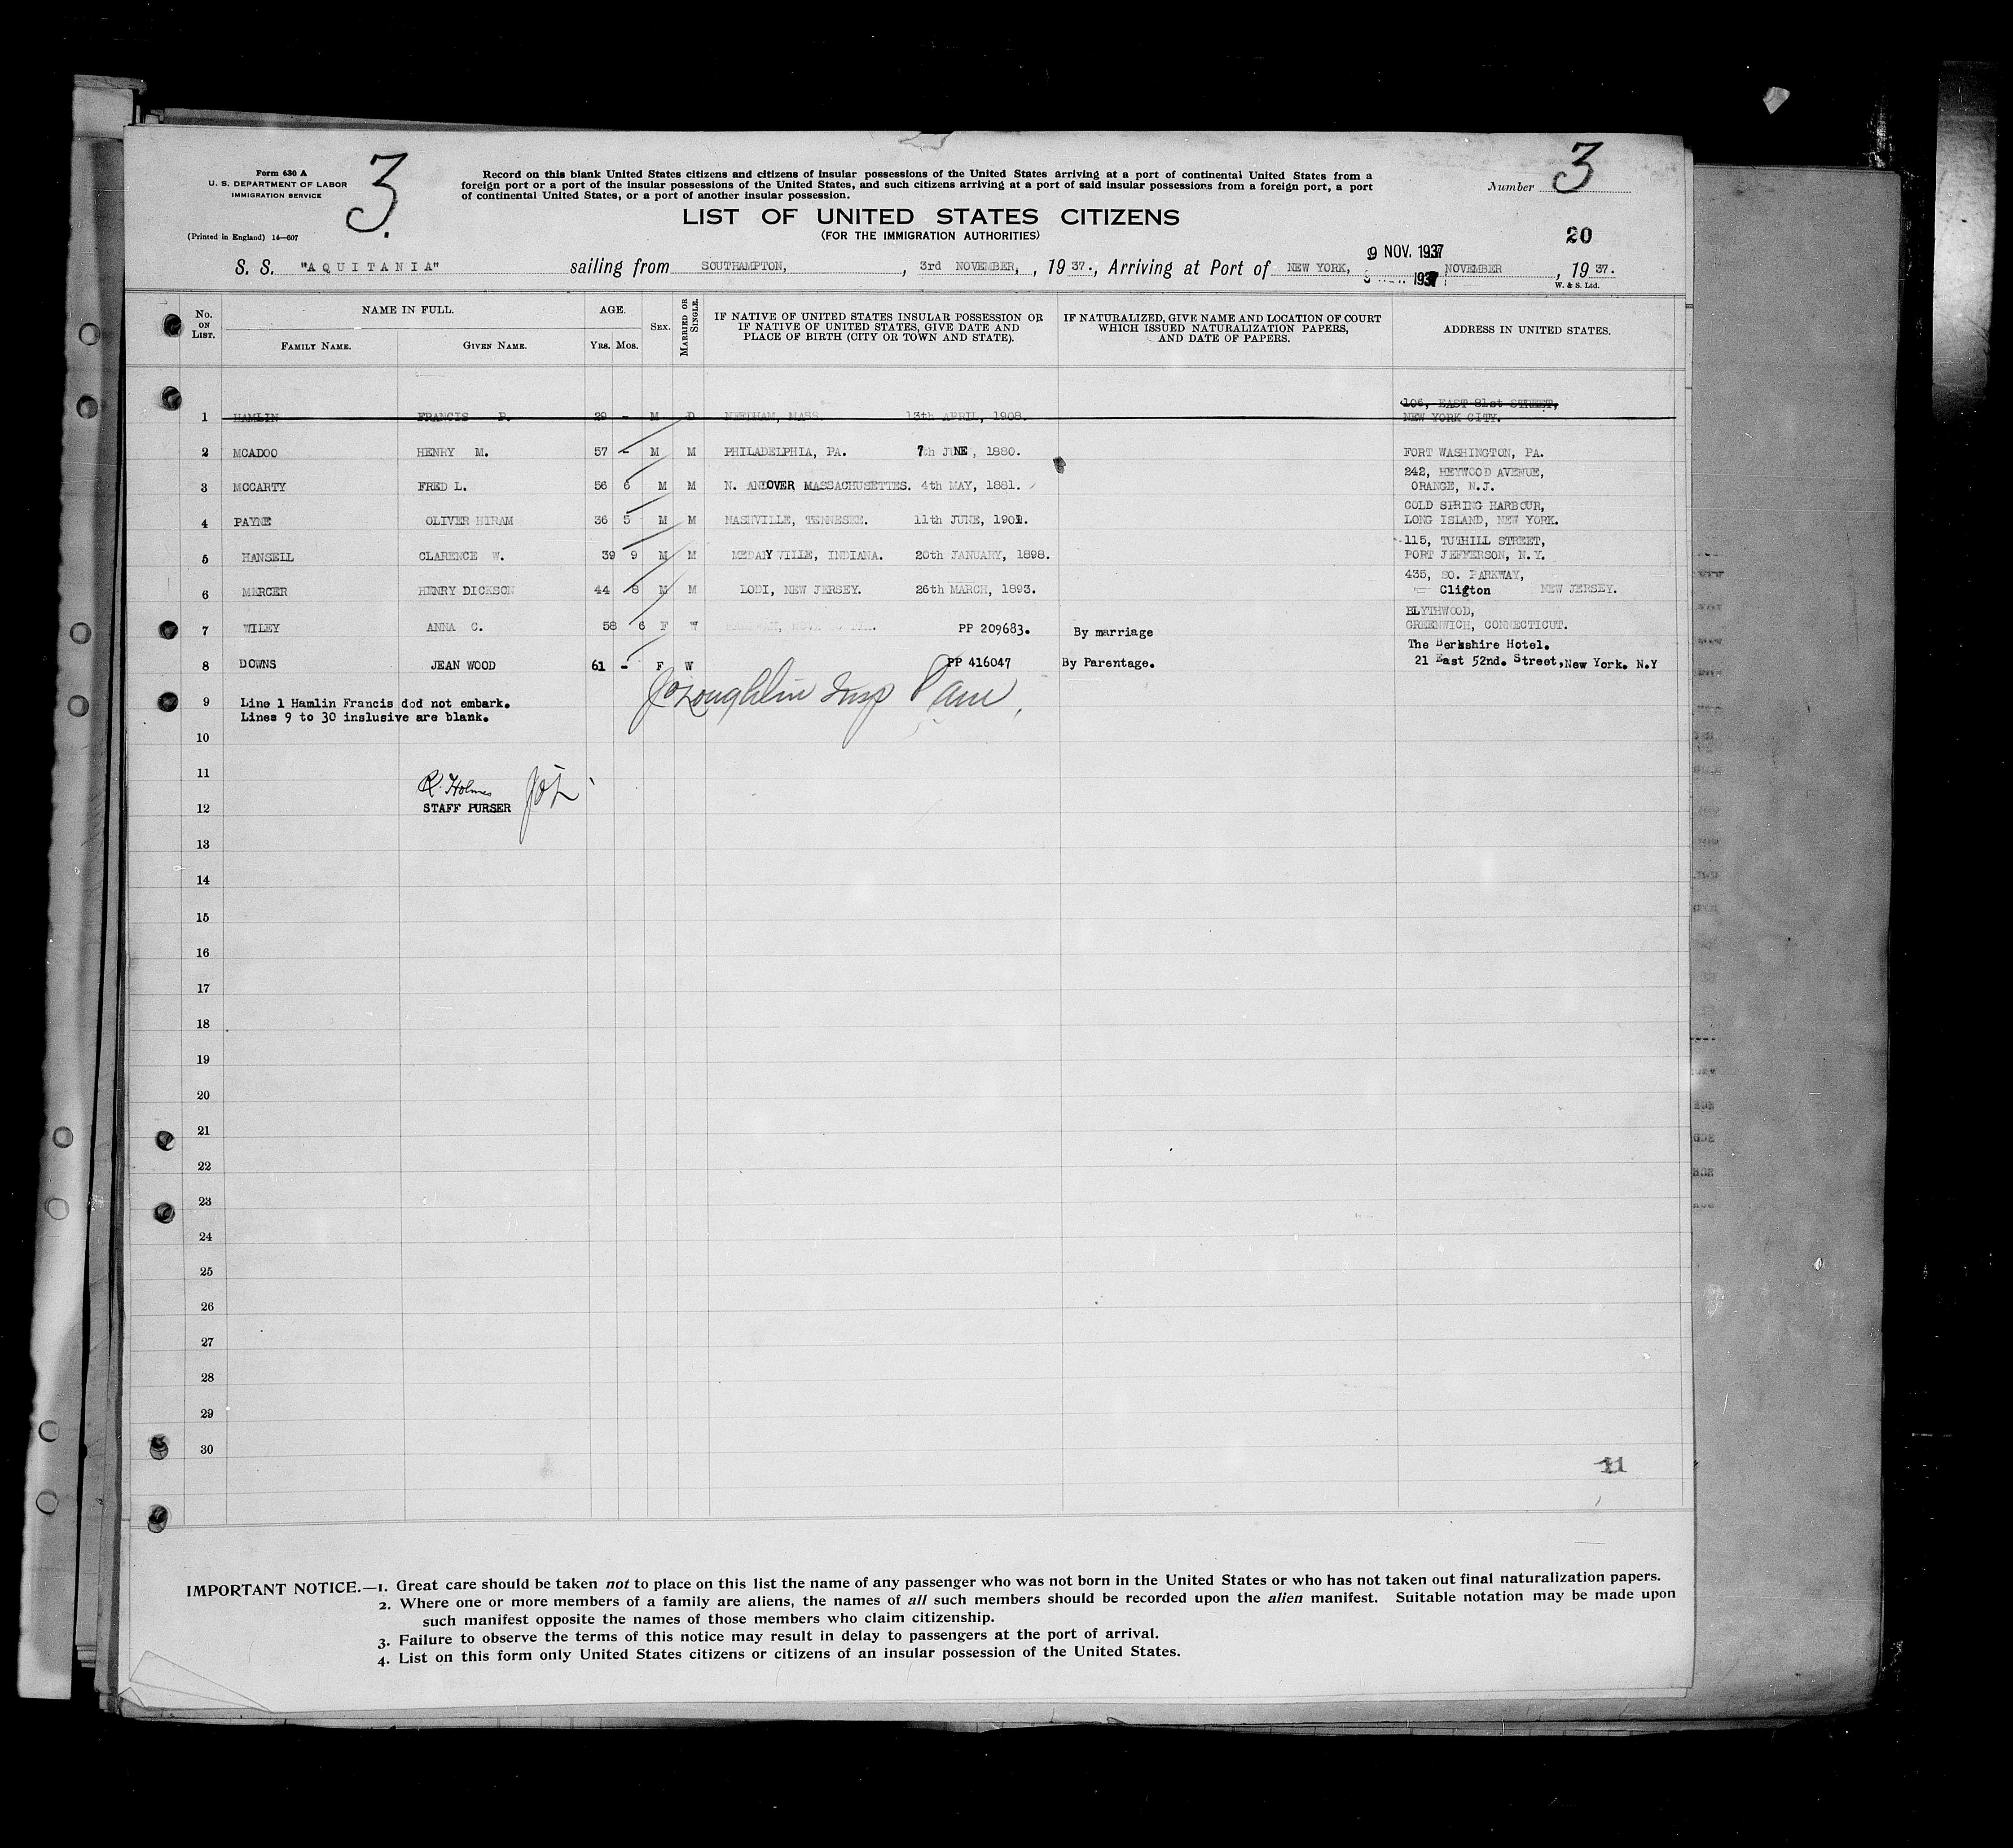 Form 630 A
U. S. DEPARTMENT OF LABOR
IMMIGRATION SERVICE
(Printed in England) 14—607
3.
Record on this blank United States citizens and citizens of insular possessions of the United States arriving at a port of continental United States from a
foreign port or a port of the insular possessions of the United States, and such citizens arriving at a port of said insular possessions from a foreign port, a port
of continental United States, or a port of another insular possession.
Number 3
LIST OF UNITED STATES CITIZENS
(FOR THE IMMIGRATION AUTHORITIES)
20
9 NOV. 1937
S. S. "AQUITANIA" sailing from SOUTHAMPTON, , 3rd NOVEMBER, , 19 37., Arriving at Port of NEW YORK, 1937 NOVEMBER , 19 37.
W. & S. Ltd.
No. ON LIST. NAME IN FULL. FAMILY NAME. GIVEN NAME. AGE. YRS. MOS. SEX. MARRIED OR SINGLE. IF NATIVE OF UNITED STATES INSULAR POSSESSION OR IF NATIVE OF UNITED STATES, GIVE DATE AND PLACE OF BIRTH (CITY OR TOWN AND STATE). IF NATURALIZED, GIVE NAME AND LOCATION OF COURT WHICH ISSUED NATURALIZATION PAPERS, AND DATE OF PAPERS. ADDRESS IN UNITED STATES.
1 HAMLIN FRANCIS P. 29 - M D NEEDHAM, MASS. 13th APRIL, 1908. 106, EAST 81st STREET, NEW YORK CITY.
2 MCADOO HENRY M. 57 - M M PHILADELPHIA, PA. 7th JUNE, 1880. FORT WASHINGTON, PA.
3 MCCARTY FRED L. 56 6 M M N. ANDOVER MASSACHUSETTES. 4th MAY, 1881. 242, HEYWOOD AVENUE, ORANGE, N.J.
4 PAYNE OLIVER HIRAM 36 5 M M NASHVILLE, TENNESEE. 11th JUNE, 1901. COLD SPRING HARBOUR, LONG ISLAND, NEW YORK.
5 HANSELL CLARENCE W. 39 9 M M MEDARYVILLE, INDIANA. 20th JANUARY, 1898. 115, TUTHILL STREET, PORT JEFFERSON, N.Y.
6 MERCER HENRY DICKSON 44 8 M M LODI, NEW JERSEY. 26th MARCH, 1893. 435, SO. PARKWAY, Cligton NEW JERSEY.
7 WILEY ANNA C. 58 6 F W PP 209683. By marriage BLYTHWOOD, GREENWICH, CONNECTICUT.
8 DOWNS JEAN WOOD 61 - F W PP 416047 By Parentage. The Berkshire Hotel. 21 East 52nd. Street, New York. N.Y
9 Line 1 Hamlin Francis dod not embark.
Lines 9 to 30 inslusive are blank.
10
11
R. Holmes
12 STAFF PURSER
13
14
15
16
17
18
19
20
21
22
23
24
25
26
27
28
29
30
11
IMPORTANT NOTICE.—1. Great care should be taken not to place on this list the name of any passenger who was not born in the United States or who has not taken out final naturalization papers.
2. Where one or more members of a family are aliens, the names of all such members should be recorded upon the alien manifest. Suitable notation may be made upon
such manifest opposite the names of those members who claim citizenship.
3. Failure to observe the terms of this notice may result in delay to passengers at the port of arrival.
4. List on this form only United States citizens or citizens of an insular possession of the United States.